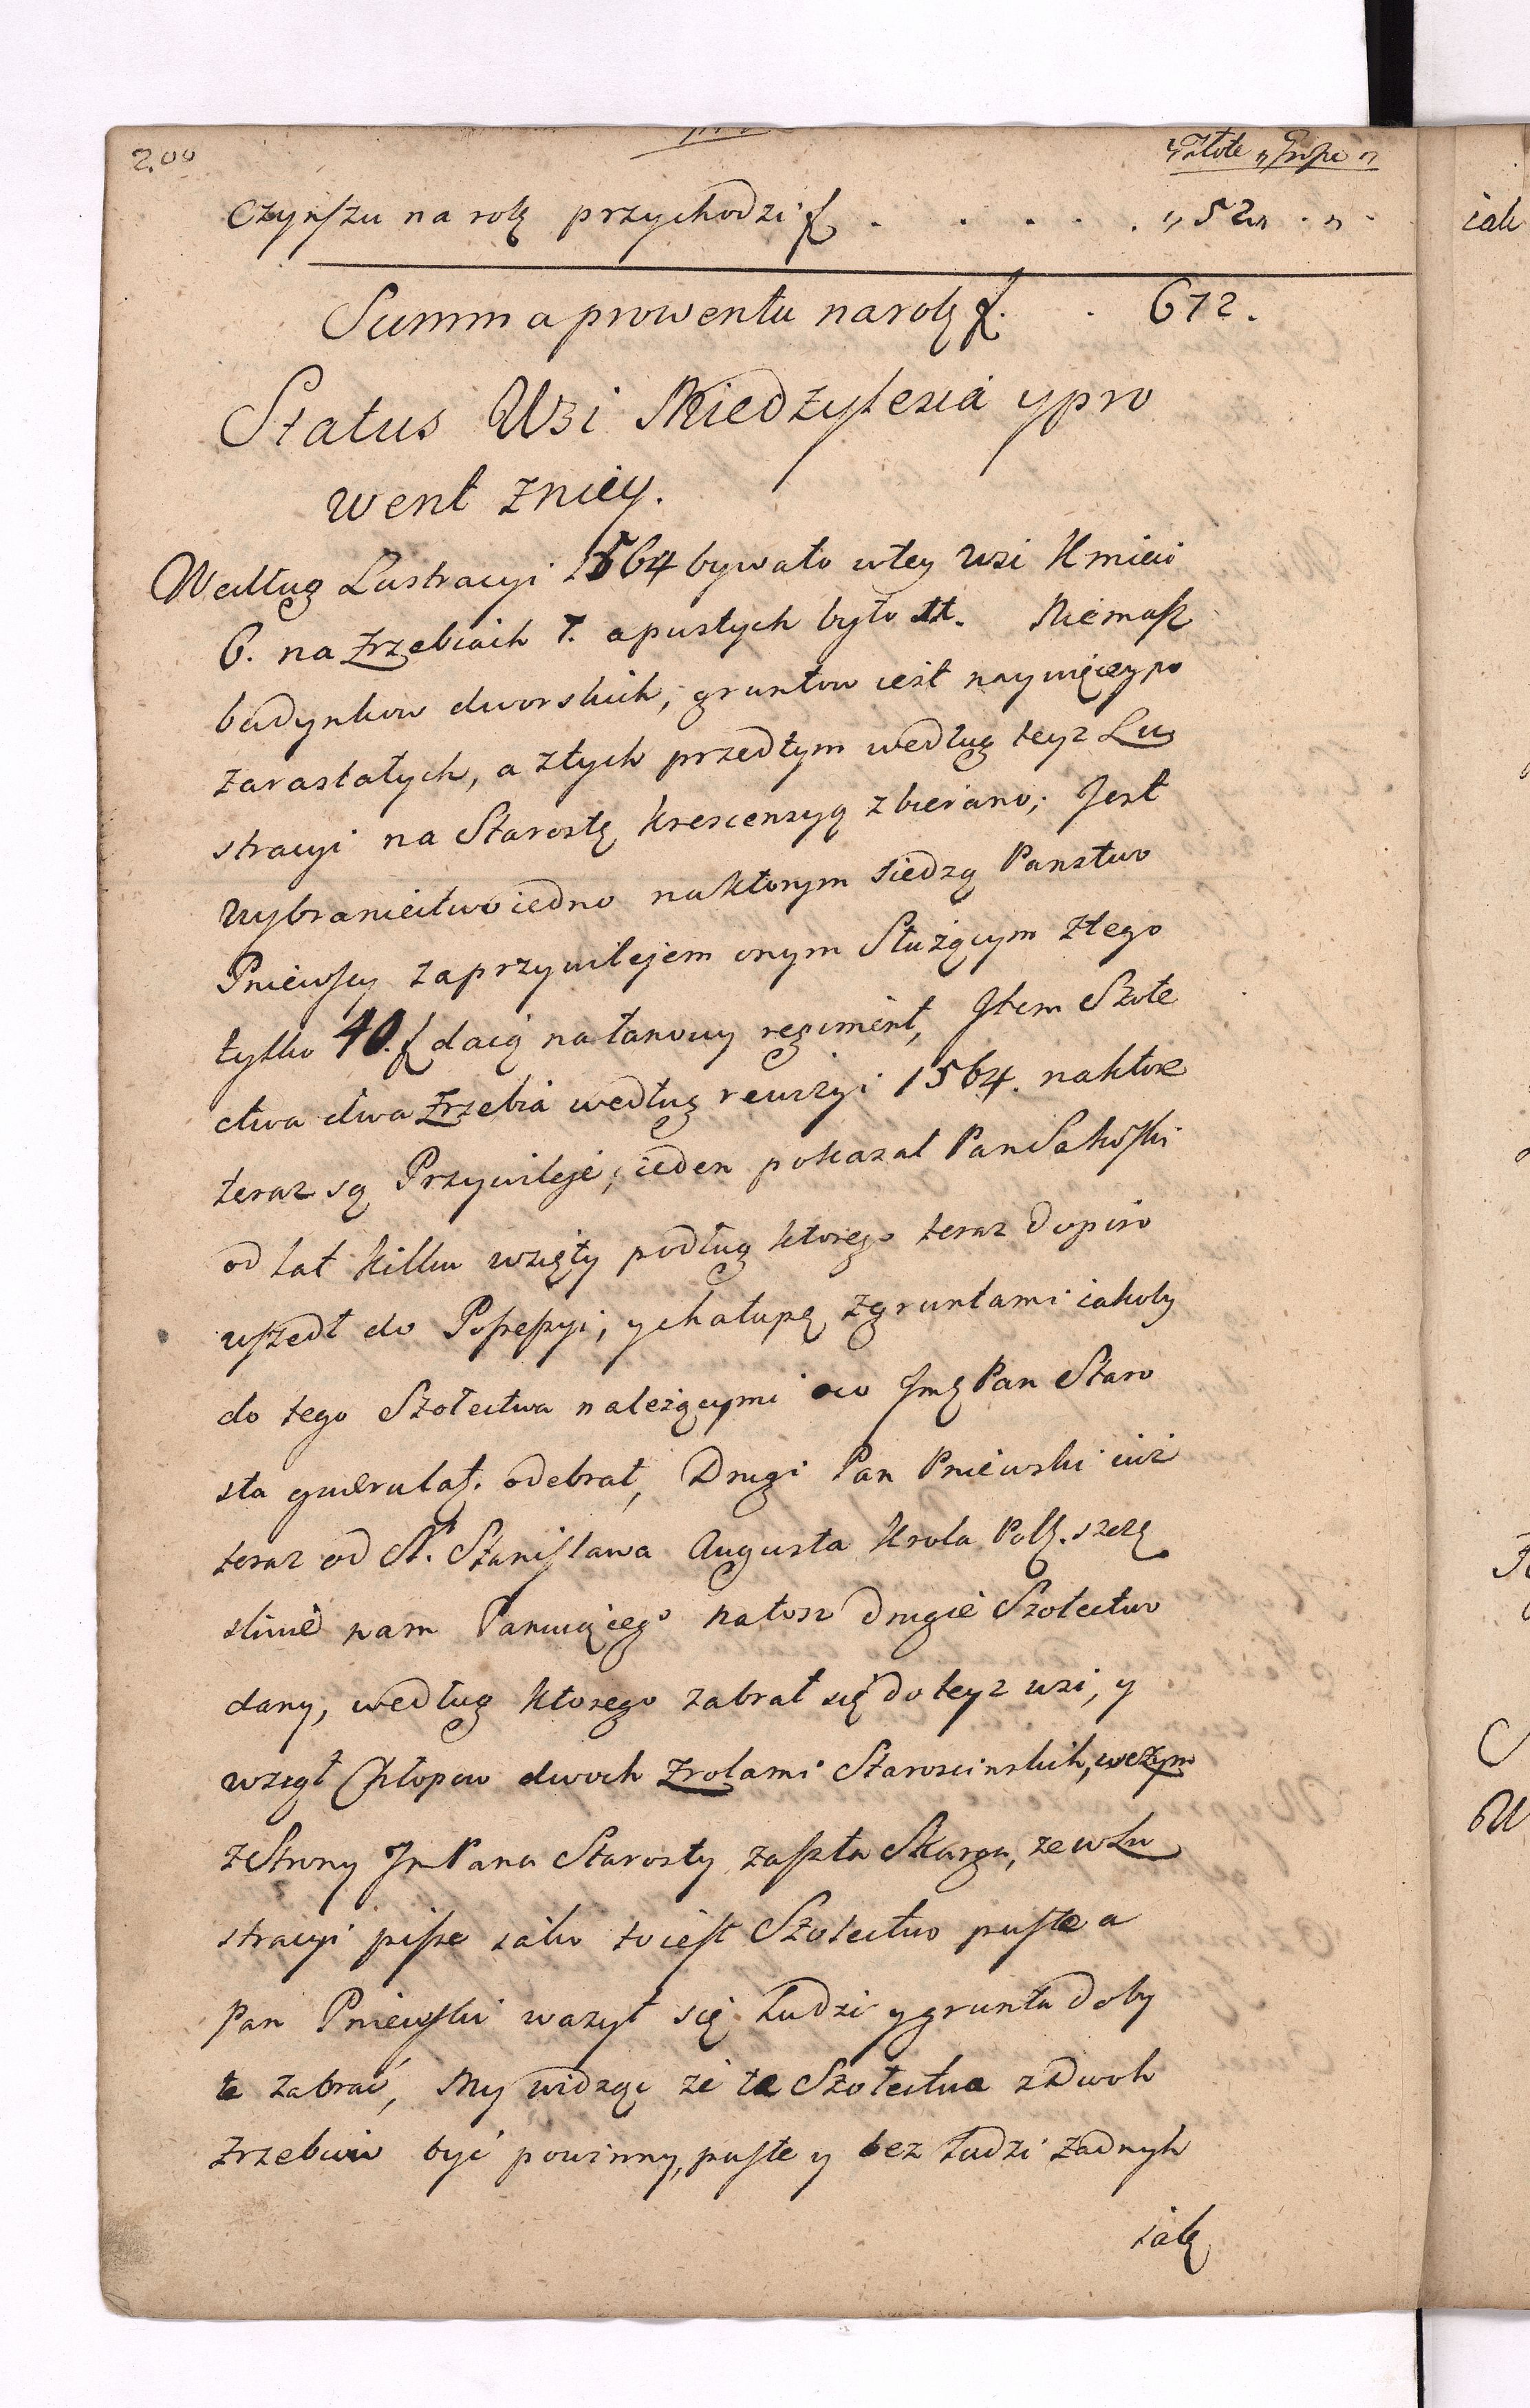 200
Złote „ Grosze „
Czynszu na rok przychodzi f. . . . . „ 52 „ . „ .
Summa prowentu na rok f. . 672.
Status Wsi Miedzylesia y pro
went z niey.
Według Lustracyi 1564 bywało w tey wsi Kmieci
6. na Zrzebiach 7. a pustych było 11. Niemasz
budynkow dworskich, gruntow iest naywięcey po
zarastałych, a z tych przedtym według teyz Lu
stracyi na Starostę krescensyą zbierano; Jest
Wybraniectwo iedno na ktorym siedzą Panstwo
Pniewscy za przywilejem onym Służącym z tego
tylko 40. f daią na łanowy regiment, Item Szołe
ctwa dwa Zrzebia według rewizyi 1564. na ktore
teraz są Przywileje, ieden pokazał Pan
od lat kilku wzięty podług ktorego teraz dopiro
wszedł do Possessyi, y chałupę z gruntami iakoby
do tego Szołectwa należącymi Jmć Pan Staro
sta odebrał, Drugi Pan Pniewski iuż
teraz od St. Stanisława Augusta Krola Polsk. szczę
sliwie nam Panuiącego na toż drugie Szołectwo
dany, według ktorego zabrał się do teyz wsi, y
wziął Chłopow dwoch z rolami Staroscinskich, w czym
z Strony Jm Pana Starosty zaszła Skarga, ze w Lu
stracyi pisze iako to iest Szołectwo puste a
Pan Pniewski wazył się Ludzi y grunta doby
te zabrać, My widząc że te Szołectwa z Dwoch
Zrzebiow być powinny, puste y bez Ludzi zadnych
iak